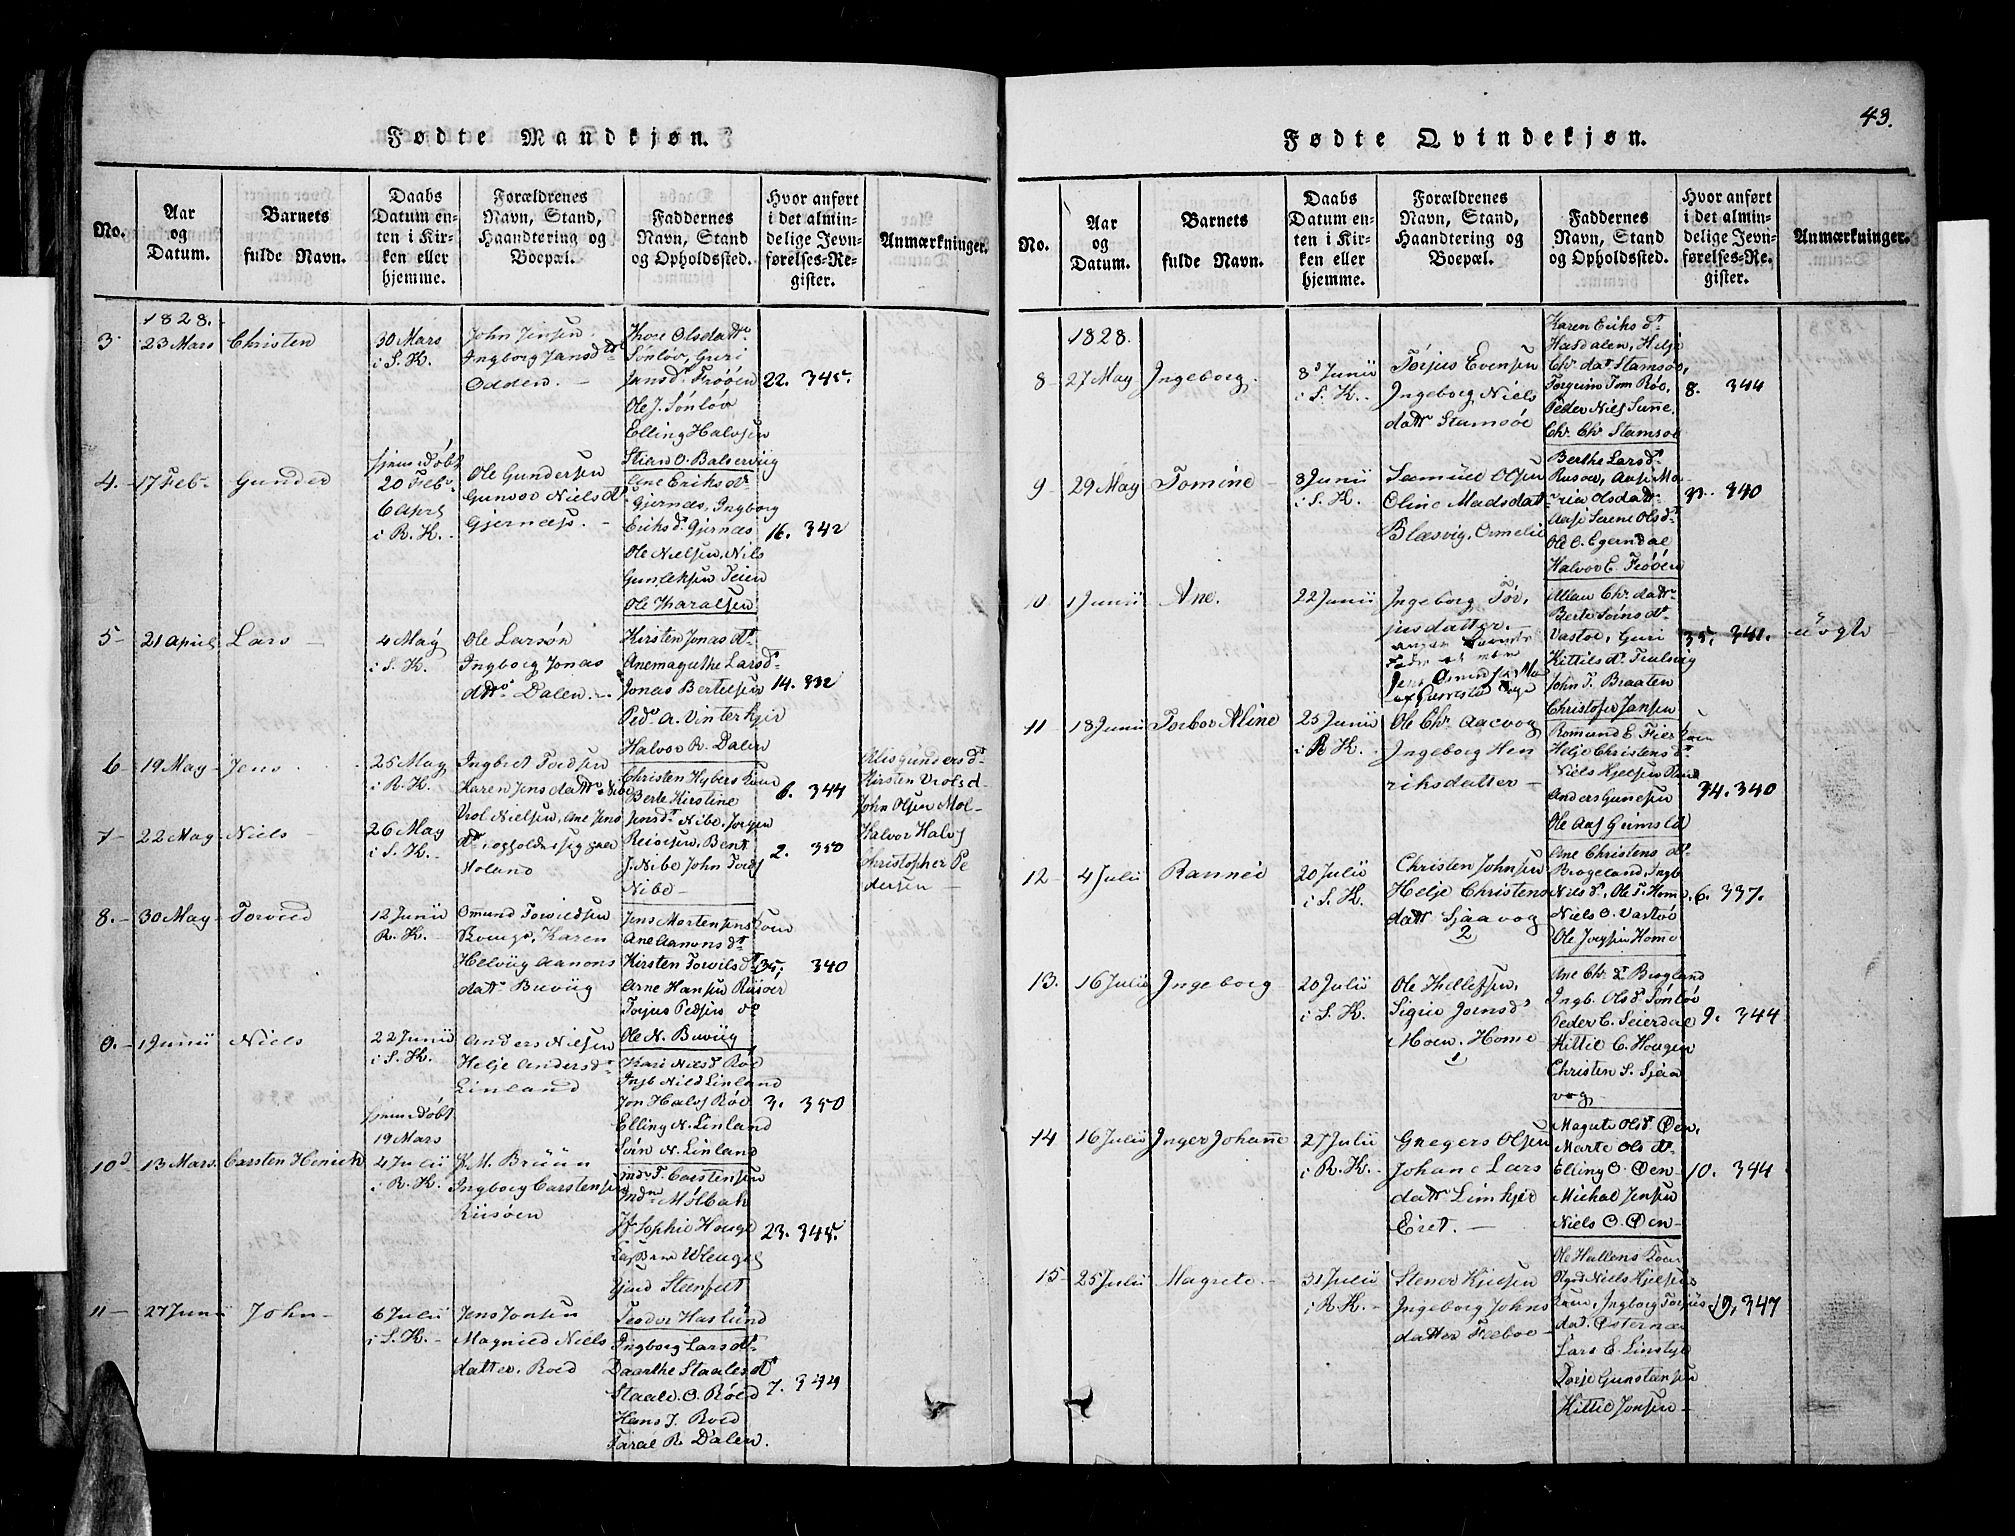 43.
Fødte Mandkjøn.
No.
Aar
og
Datum.
Barnets
fulde Navn.
Daabs
Datum en-
ten i Kir-
ken eller
hjemme.
Forældrenes
Navn, Stand,
Haandtering og
Boepæl.
Faddernes
Navn, Stand
og Opholdssted.
Hvor anført
i det almin-
delige Jevn-
førelses-Re-
gister.
Anmærkninger.
1828.
3
23 Mars
Christen
30 Mars
i S. K.
John Jensen
Ingborg Jansd
Odden.
Thore Olsdatr
Sönlöv, Guri
Jansd. Frøöen
Ole J. Sönlöv
Elling Halvsen
Stian O. Balservüg
22. 345.
4.
17 Febr
Gunder
20 Febr
6 April
i R. K.
Ole Gundersen
Gunvor Nielsdr
Gjernæs.
Ane Eriksdr
Gjernæs, Ingborg
Eriksd. Gjernæs
Ole Nielsen, Nils
Gunleksen Teien
Ole Tharalsen
16. 342
5
21 April
Lars
4 May
i S. K.
Ole Larsön
Ingborg Jonas
datr Dalen.
Kirsten Jonasdr
Anemagrethe Larsdr
Jonas Bertelsen
Pedr A. Vinterkjer
Halvor R. Dalen
14. 332
6
19 May
Jens
25 May
i R. K.
Ingbret Tordsen
Karen Jensdatr
Christen Hybers Kone
Berte Kirstine
6. 344
7
22 May
Niels
26 May
i S. K.
Vrol Nielsen, Ane Jens
dr opholder sig paa
Holand
Jensdr Nibe, Jørgen
Reiersen, Bent
J. Nibe John Tords
Nibe
2. 350
Kirsten Vrolsd
John Olsen Mol-
Halvor Halvs
Christopher Pe
dersen
8.
30 May
Torvild
12 Junii
R. K.
Omund Torvildsen
Karen
Helviig Aanons
datr Buviig
Jens Mortensens Kone
Ane Aanonsdr
Kirsten Torvilsdr
Arne Hansen Riisøer
Torjus Pedsen do
Ole N. Buviig
35. 340
9.
1 Junii
Niels
22 Junii
i S. K.
Anders Nielsen
Helje Andersdr
Linland
Kari Nilsdr Röe
Ingb Nilsd Linland
Jon Halvs Röe
Elling N. Linland
Sørn N. Linland
3. 350
10
13 Mars
Carsten Hinrich
19 Mars
4 Julii
i R. K.
K. M. Brüün
Ingborg Carstensen
Riisöen
T. Carstensen
Mølbak
Jf Sophie Houge
Stenfelt
Teodor Haslund
23. 345.
11
27 Junii
John
6 Julii
i S. K.
Jens Jonsen
Magnild Niels
datter. Roed
Ingborg Larsdr
Daarthe Staalesdr
Staale O. Röed
Hans J. Roed
Taral R. Dalen.
7. 344
Fødte Qvindekjøn.
No.
Aar
og
Datum.
Barnets
fulde Navn.
Daabs
Datum en-
ten i Kir-
ken eller
hjemme.
Forældrenes
Navn, Stand,
Haandtering og
Boepæl.
Faddernes
Navn, Stand
og Opholdssted.
Hvor anført
i det almin-
delige Jevn-
førelses-Re-
gister.
Anmærkninger.
1828.
8
27 May
Ingeborg
8 Junii
i S. K.
Torjus Evensen
Ingeborg Niels
datr Stamsöe
Karen Eriksdr
Hasdalen, Helje
Chr. datr Stamsöe,
Torguim Tom Röe,
Peder Niels Sunne,
Chr. Chr. Stamsöe
8. 344
9
29 May
Tomine
8 Junii
i S. K.
Samuel Olsen
Oline Madsdatr
Blæsvig, Ormelie
Berthe Larsdr
Risöe, Aase Ma-
ria Olsdatr
Aase Serene Olsdr
Ole O. Egerndal
Halvor E. Frøöen
33. 340
10
1 Junii
Ane.
22 Junii
Ingeborg Tör,
jusdatter.
Chr. datr
Berte Sörnsdr
Vastöe, Guri
Kittilsdr Trulsvig
John T. Braaten
Christofer Jansen
35. 341.
uægte
11
18 Junii
Torbor Aline
25 Junii
i R K.
Ole Chr. Aasvog
Ingeborg Hen
riksdatter
Romund E. Fiers Kone
Helje Christensdr
Niels Kjelsen
Anders Gunesen
Ole Aas Grimsld
34. 340
12
4 Julii
Rannei
20 Julii
i S. K.
Christen Johnsen
Helje Christens
datr Sjaavog
2
Ane Christensdr
Brogeland, Ingb
Nilsdr, Ole T. Home
Niels O. Vastöe
Ole Joessen Homme
6. 337.
13.
16 Julii
Ingeborg
20 Julii
i S. K.
Ole Thellefsen,
Sigrie Jonsdr
Moen. Home
1
Ane Chr. dr Brogland
Ingb. Olsdr Sönlöv
Peder C. Seierdal
Kittil C. Hougen
Christen S. Sjaa
vog
9. 344
14
16 Julii
Inger Johanne
27 Julii
i R. K.
Gregers Olsen
Johane Lars
datr Limkjer
Eiet.
Magrete Olsdr Øen,
Marte Olsdr
Elling O. Øen
Michal Jensen
Niels O. Øen
10. 344
15
25 Julii
Magrete
31 Julii
i R K.
Stener Kjelsen
Ingeborg Johns
datter Feeboe
Ole Hallens Kone
Niels Hjelsens
Kone, Ingborg Torjus
dat. Østernæs
Lars E. Linstøl
Torje Gunstensen
Kittil Jonsen
19, 347